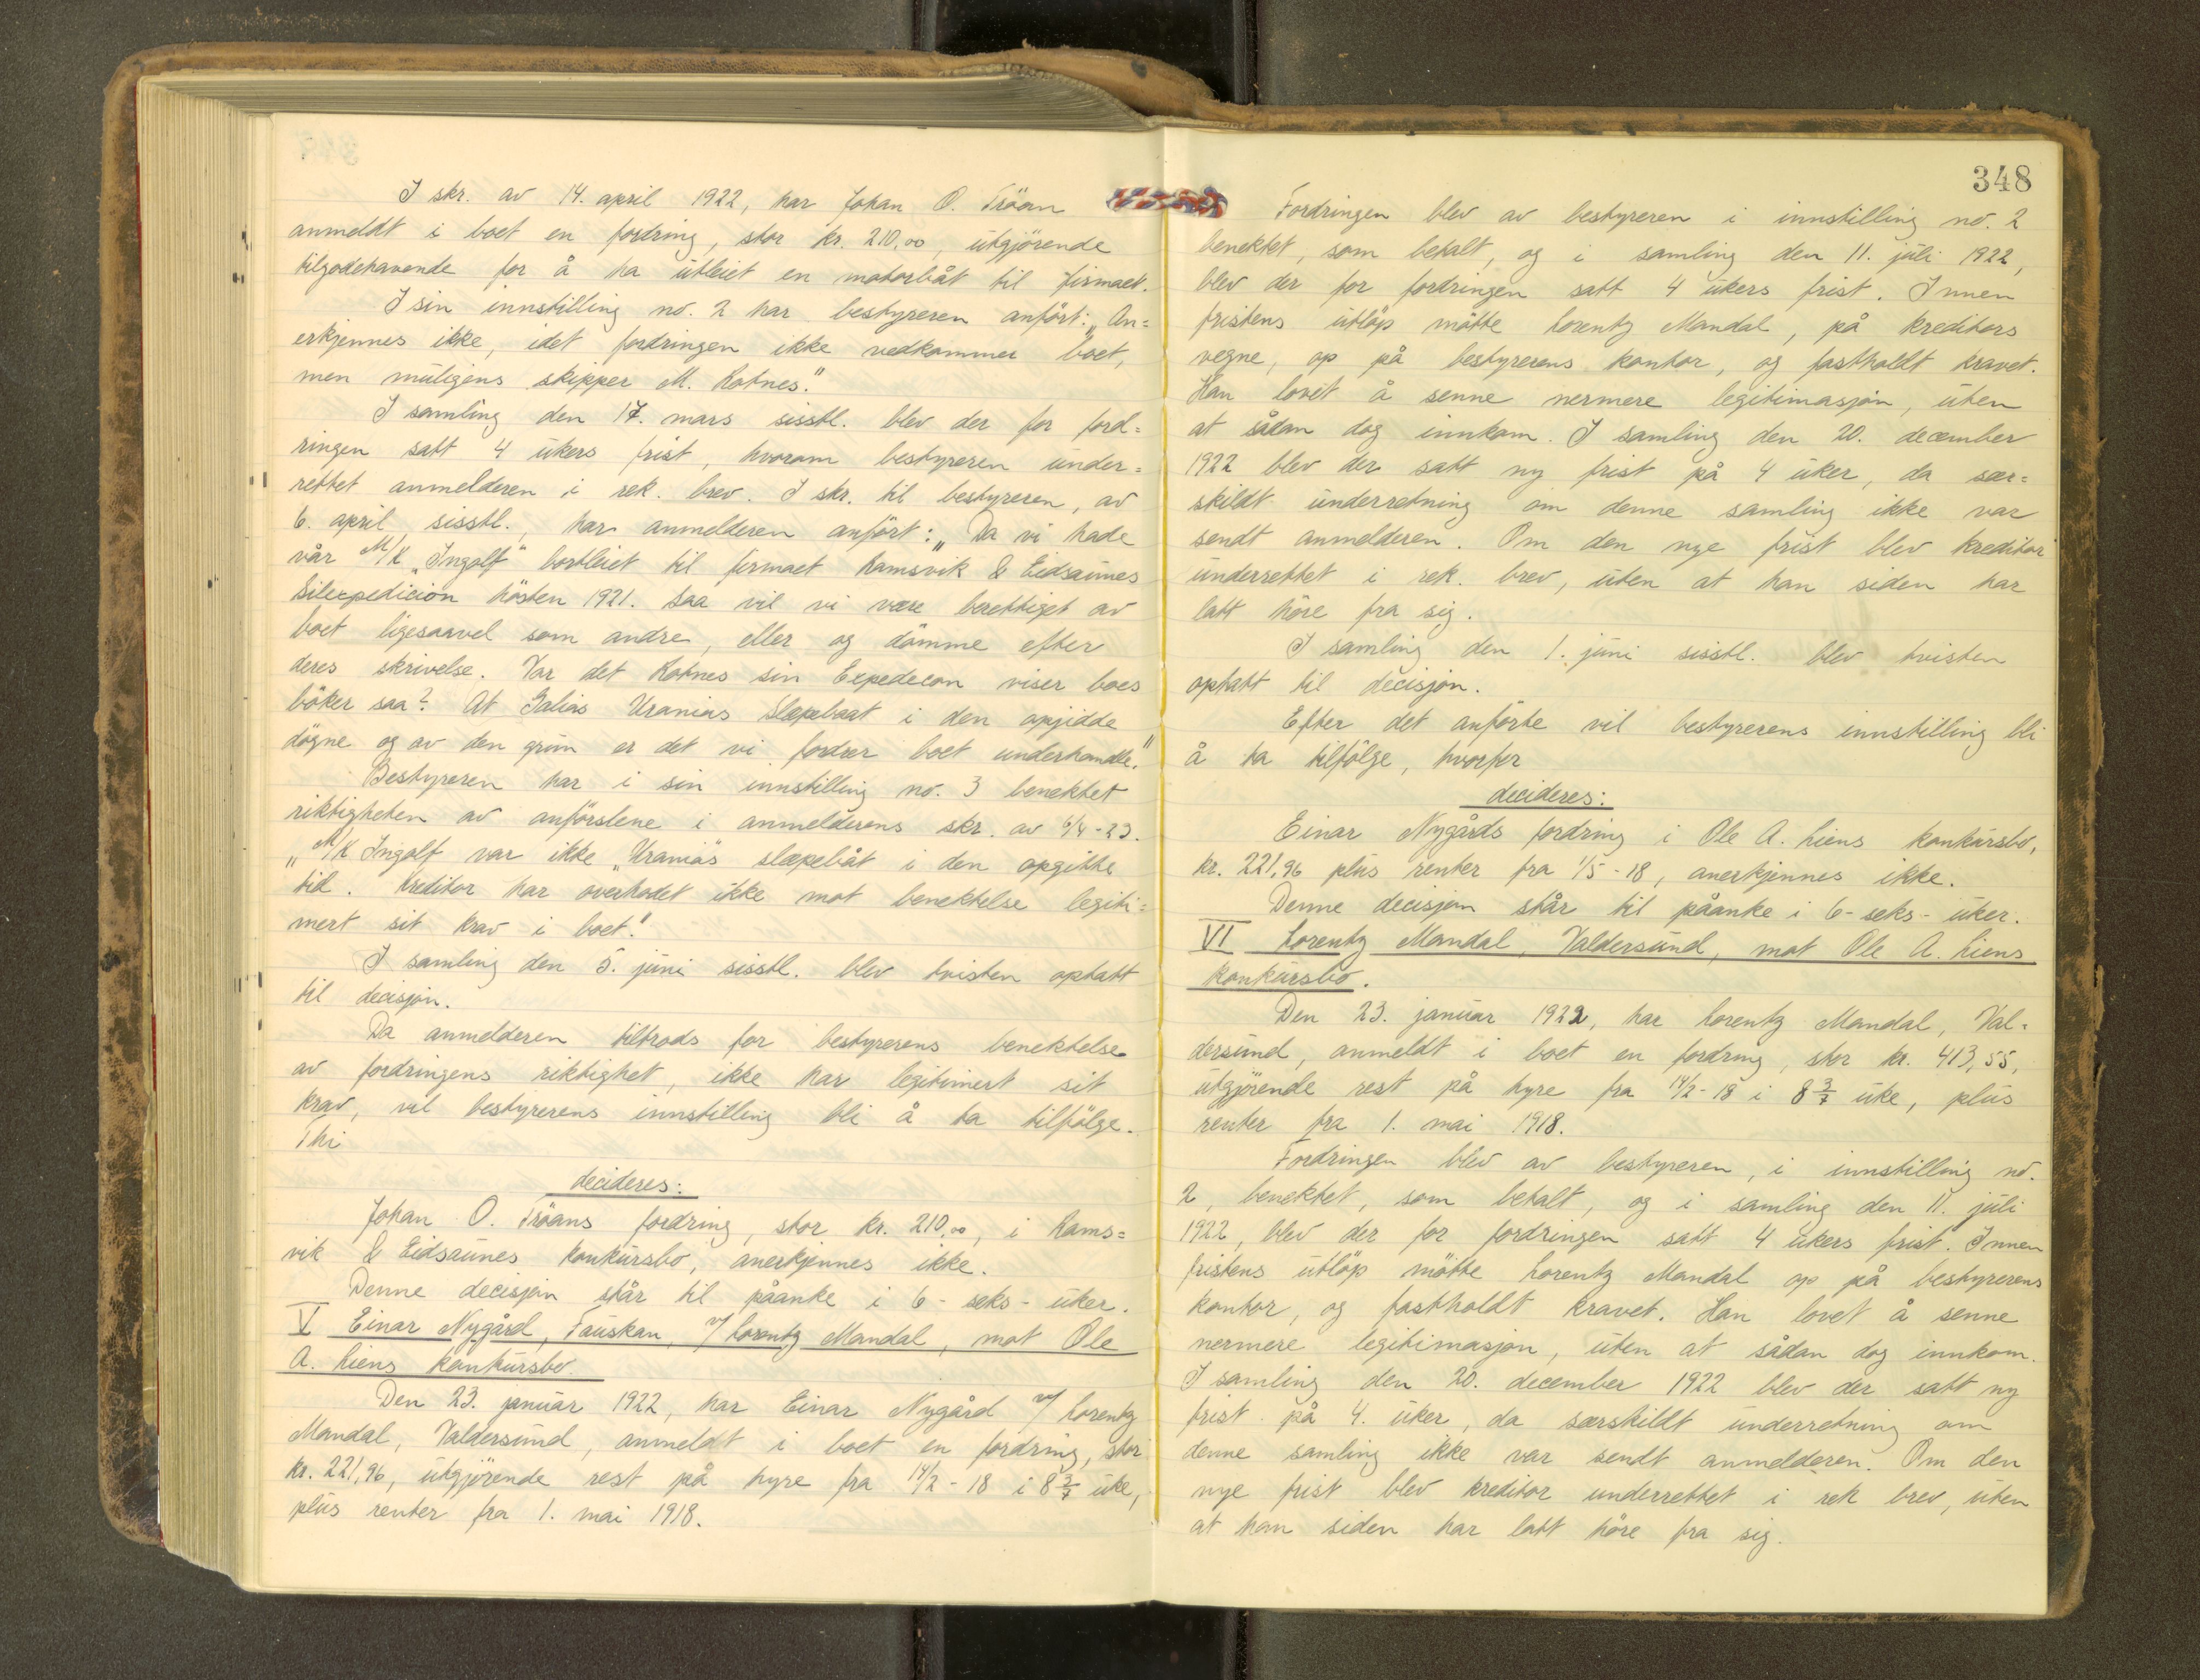 I skr. av 14. april 1922, har Johan O. Tröan
anmeldt i boet en fordring, stor kr. 210,00, utgjörende
tilgodehavende for å ha utleiet en motorbåt til firmaet.
I sin innstilling no. 2 har bestyreren anfört: „An=
erkjennes ikke, idet fordringen ikke vedkommer boet,
men muligens skipper M. Kotnes."
I samling den 17. mars sisstl. blev der for ford=
ringen satt 4 ukers frist, hvorom bestyreren under=
rettet anmelderen i rek. brev. I skr. til bestyreren, av
6. april sisstl., har anmelderen anfört: „Da vi hade
vår M/K „Ingolf" bortleiet til firmaet Ramsvik & Eidsaunes
Silexpedicion hösten 1921. saa vil vi være berettiget av
boet ligesaavel som andre, eller og dömme efter
deres skrivelse. Var det Kotnes sin Expedecon viser boes
böker saa? At Galias Uranias Slæpebaat i den opjidde
dögne og av den grun er det vi fordrer boet underhandle."
Bestyreren har i sin innstilling no. 3 benektet
riktigheten av anförslene i anmelderens skr. av 6/4-23.
„M/K Ingolf var ikke „Uranias slæpebåt i den opgitte
tid. Kreditor har overhodet ikke mot benektelse legiti=
mert sit krav i boet."
I samling den 5. juni sisstl. blev tvisten optatt
til decisjon.
Da anmelderen tiltrods for bestyrerens benektelse
av fordringens riktighet, ikke har legitimert sit
krav, vil bestyrerens innstilling bli å ta tilfölge.
Thi
decideres:
Johan O. Tröans fordring, stor kr. 210,00, i Rams=
vik & Eidsaunes konkursbo, anerkjennes ikke.
Denne decisjon står til påanke i 6 - seks - uker.
V Einar Nygård, Fauskan, v/ Lorentz Mandal, mot Ole
A. Liens konkursbo.
Den 23. januar 1922, har Einar Nygård v/ Lorentz
Mandal, Valdersund, anmeldt i boet en fordring, stor
kr. 221,96, utgjörende rest på hyre fra 14/2-18 i 8 3/7 uke,
plus renter fra 1. mai 1918.
348
Fordringen blev av bestyreren i innstilling no. 2
benektet, som betalt, og i samling den 11. juli 1922,
blev der for fordringen satt 4 ukers frist. Innen
fristens utlöp mötte Lorentz Mandal, på kreditors
vegne, op på bestyrerens kontor, og fastholdt kravet.
Han lovet å senne nermere legitimasjon, uten
at sådan dog innkom. I samling den 20. december
1922 blev der satt ny frist på 4 uker, da sær=
skildt underretning om denne samling ikke var
sendt anmelderen. Om den nye frist blev kreditor
underrettet i rek. brev, uten at han siden har
latt höre fra sig.
I samling den 1. juni sisstl. blev tvisten
optatt til decisjon.
Efter det anförte vil bestyrerens innstilling bli
å ta tilfölge, hvorfor
decideres:
Einar Nygårds fordring i Ole A. Liens konkursbo,
kr. 221,96 plus renter fra 1/5-18, anerkjennes ikke.
Denne decisjon står til påanke i 6 - seks - uker.
VI Lorentz Mandal, Valdersund, mot Ole A. Liens
konkursbo.
Den 23. januar 1922, har Lorentz Mandal, Val=
dersund, anmeldt i boet en fordring, stor kr. 413,55,
utgjörende rest på hyre fra 14/2-18 i 8 3/7 uke, plus
renter fra 1. mai 1918.
Fordringen blev av bestyreren, i innstilling no.
2, benektet, som betalt, og i samling den 11. juli
1922, blev der for fordringen satt 4 ukers frist. Innen
fristens utlöp mötte Lorentz Mandal op på bestyrerens
kontor, og fastholdt kravet. Han lovet å senne
nermere legitimasjon, uten at sådan dog innkom.
I samling den 20. december 1922 blev der satt ny
frist på 4. uker, da særskildt underretning om
denne samling ikke var sendt anmelderen. Om den
nye frist blev kreditor underrettet i rek brev, uten
at han siden har latt höre fra sig.